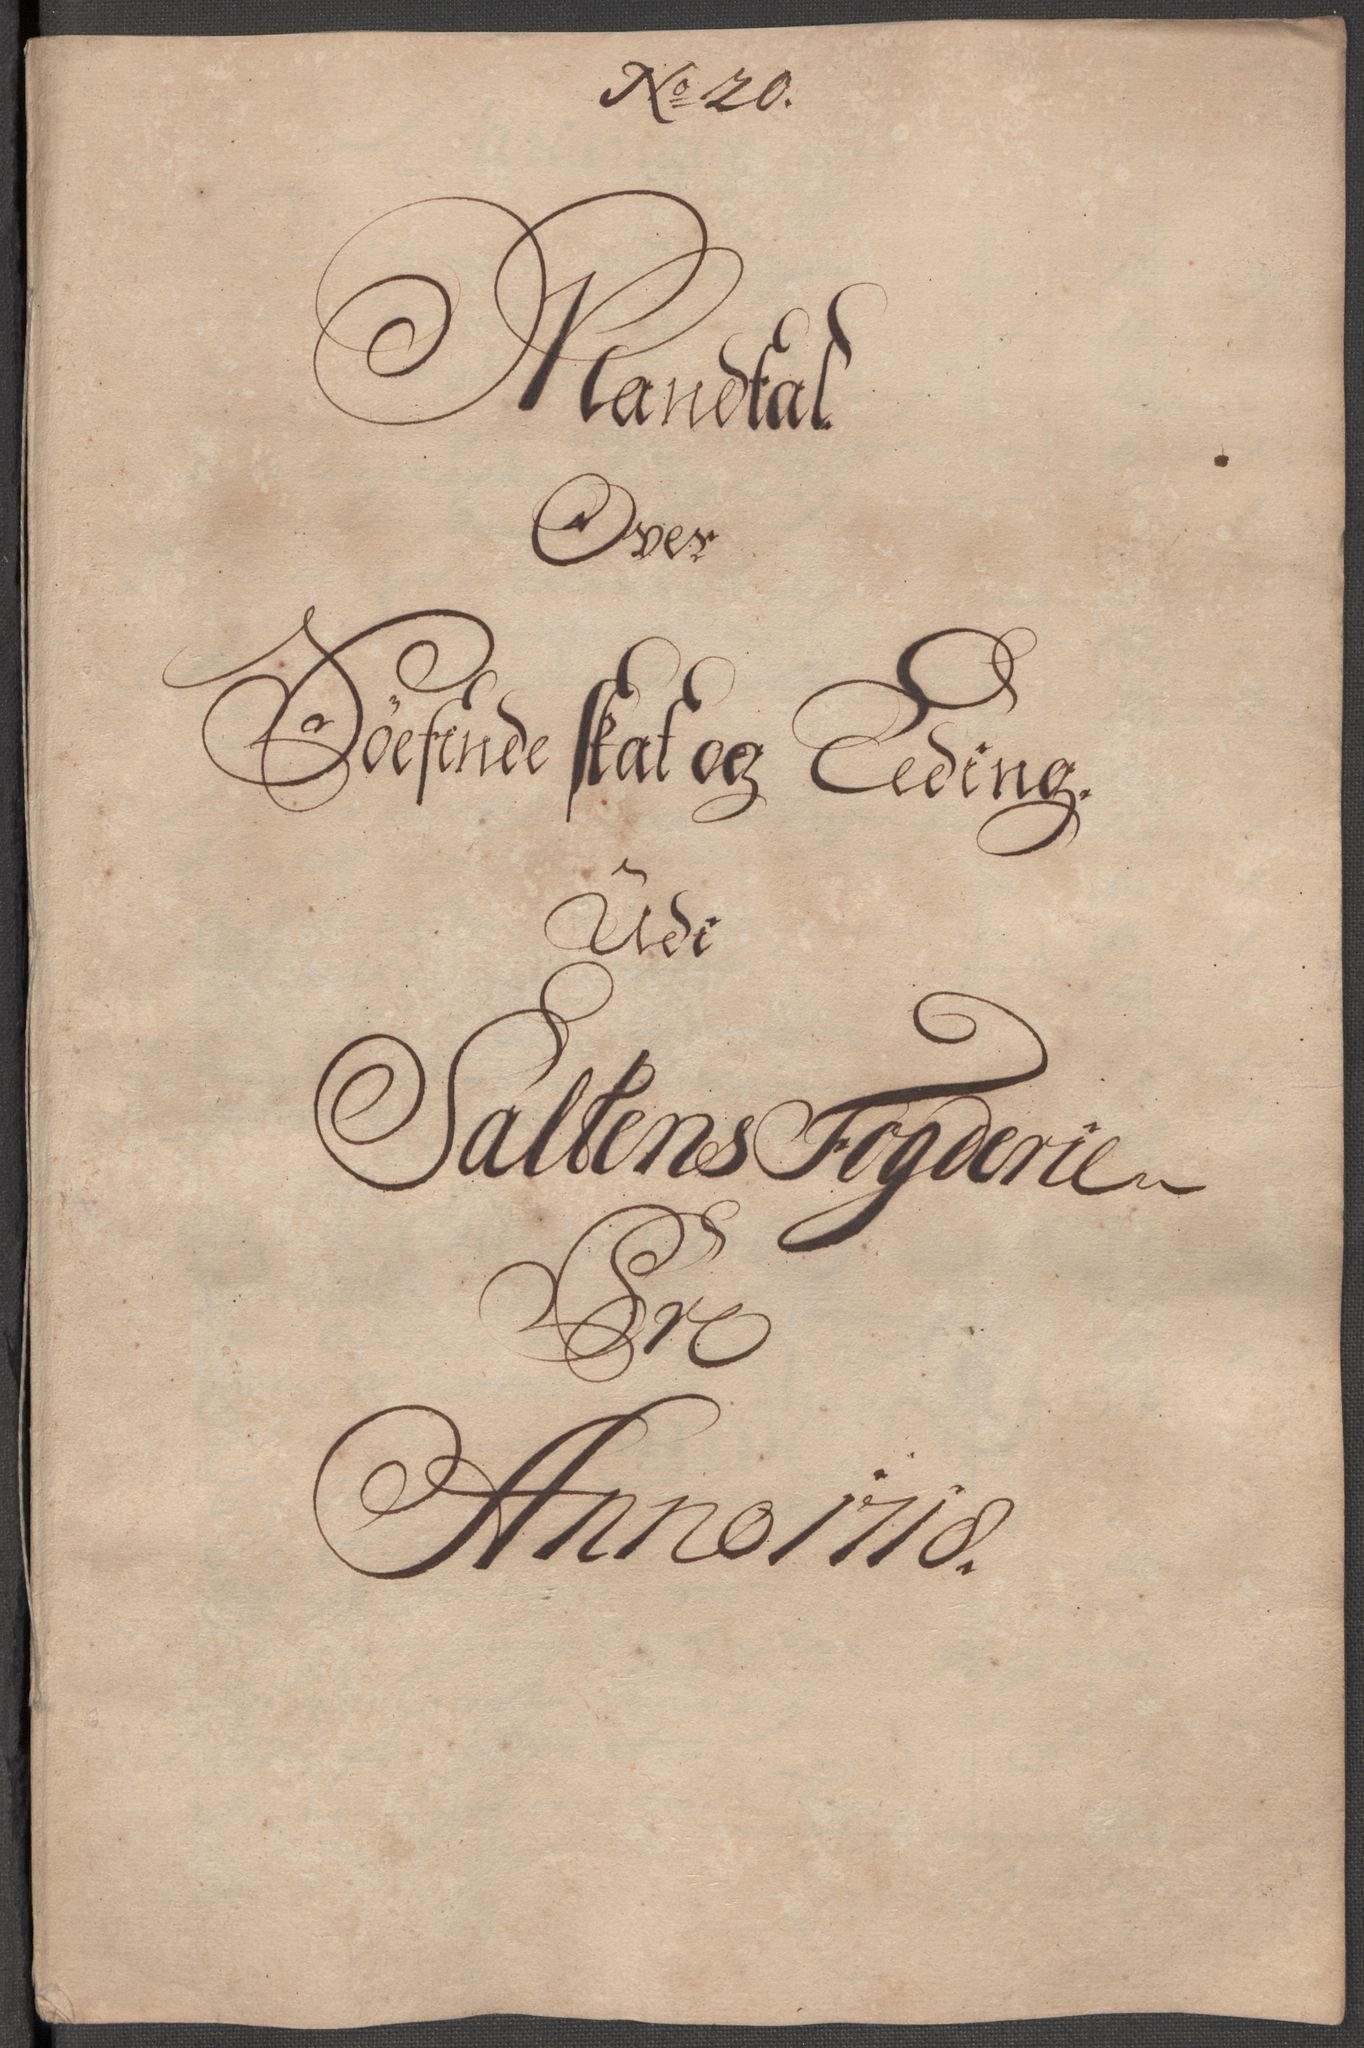 No 20.
Mandtal
Over
Søefinde skat og Leding.
Udi
Saltens Fogderie
Pro
Anno 1718.